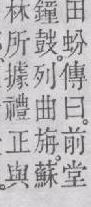 田蚡傳曰。前堂
鐘鼓。列曲旃。蘇
林所據禮正與